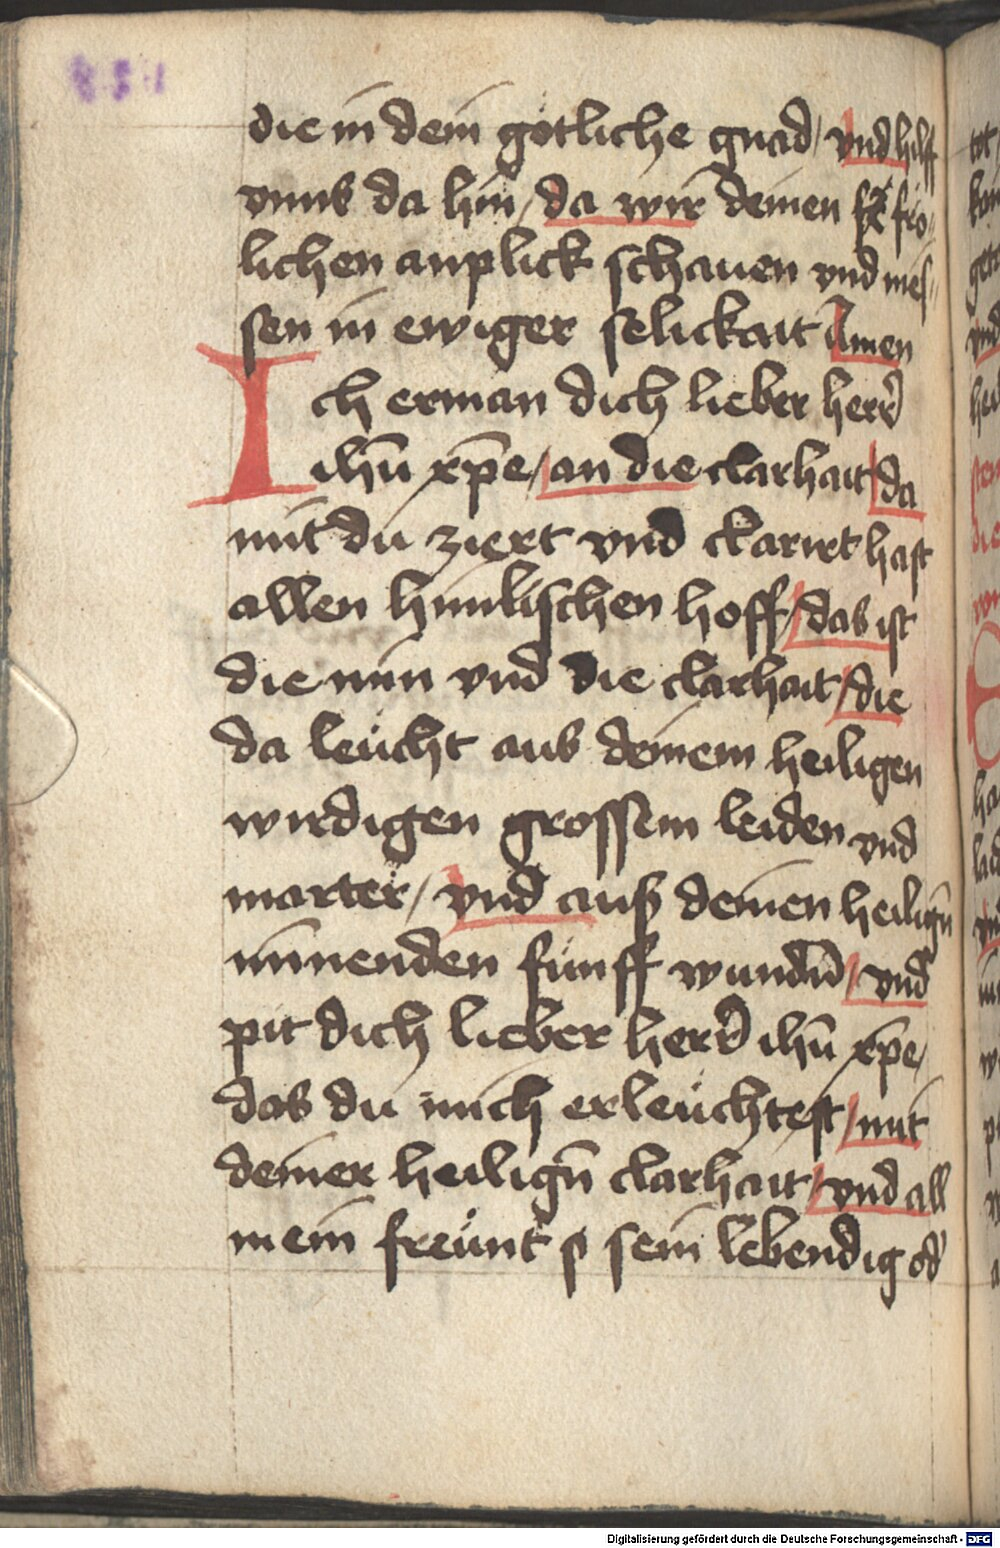 die in dein götliche gnad / vnd hilff
vnns da hin / da wir deinen frö
lichen anplick schauen vnd nies
sen in ewiger selickait Amen
Ich erman dich lieber herr
ihū xp̄e / an die clarhait / da
mit du ziert vnd clarirt hast
allen himlischen hoff / das ist
die min vnd die clarhait / die
da leücht aus deinem heiligen
wirdigen grossem leiden vnd
marter / vnd auß deinen heilign̄
minnenden fünff wundn̄ / vnd
pit dich lieber herr ihū xp̄e /
das du mich erleüchtest / mit
deiner heilign̄ clarhait / vnd all
mein freünt sein lebendig od'
Digitalisierung gefördert durch die Deutsche Forschungsgemeinschaft - DFG